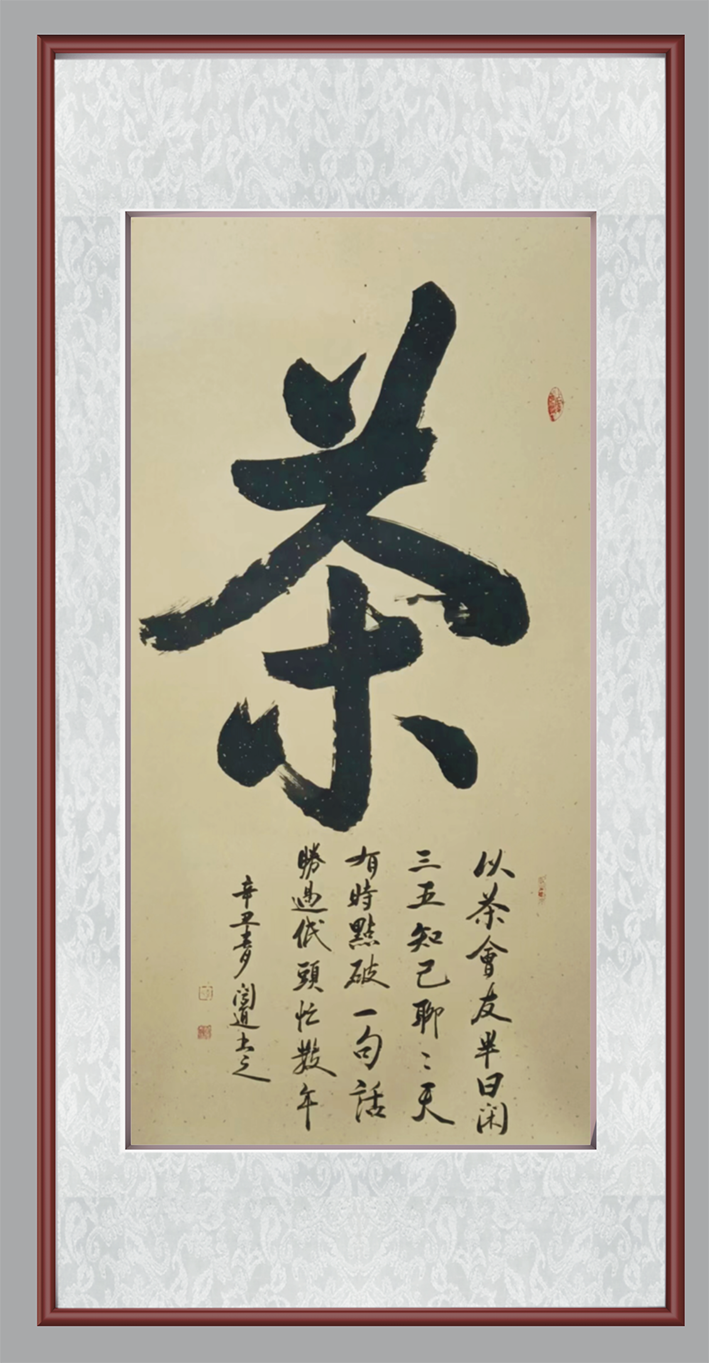 茶
以茶會友半日闲
三五知己聊〻天
有時點破一句話
勝過低頭忙数年
辛丑春月